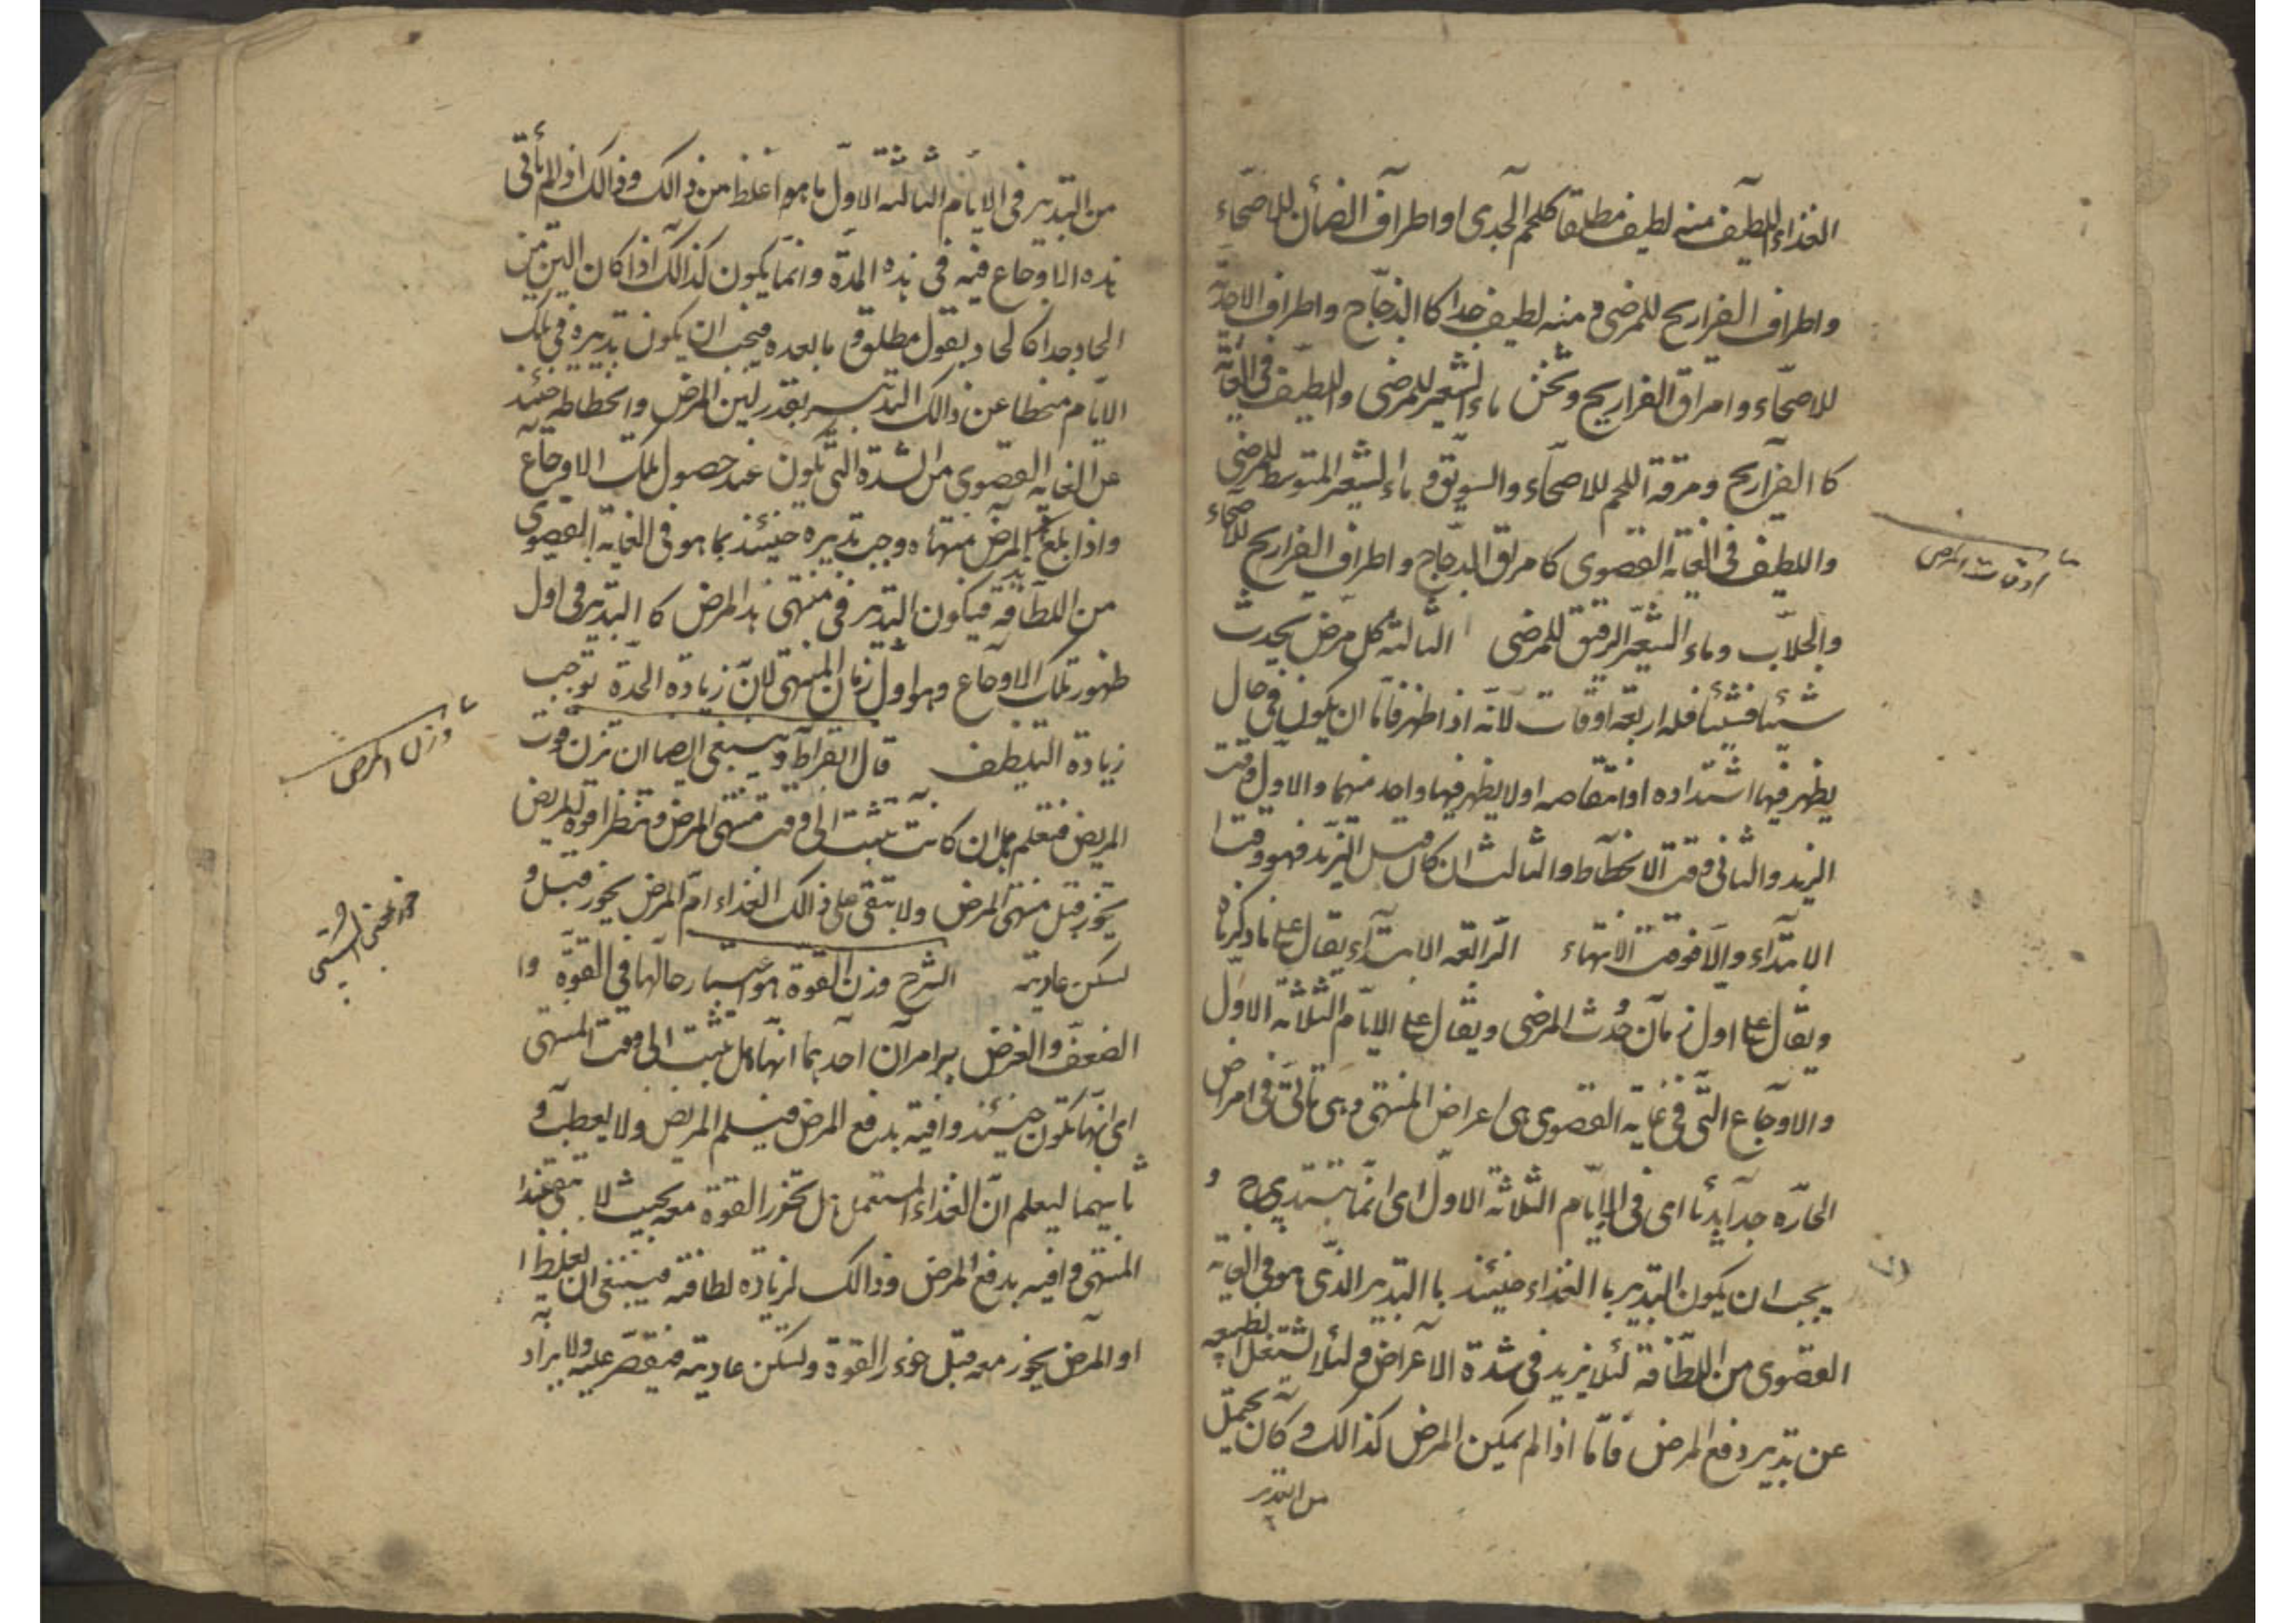 الغذاء اللطيف منه لطيف مطلقا كلحم الجدى او اطراف الضأن للاصحّاء
واطراف الفراريج للمرضى و منه لطيف جدا كا الدجّاج واطراف
للاصحّاء وامراق الفراريج و ماء الشعير للمرضى واللطيف فى الغاية
كا الفراريج ومرقة اللحم للاصحّاء والسويق و ماء الشعير المتوسط للمرضى
واللطيف فى الغاية القصوى كا مرق الدجّاج واطراف الفراريج للاصحاء
والجلّاب وماء الشعير الرقيق للمرضى الثالثة كل مرض يحدث
شيئا فشيئا فله اربعة اوقات لانّه اذا ظهر فامّا ان يكون فى حال
يظهر فيها اشتداده او انتقاصه اولا يظهر فيها واحد منهما والاول وقت
التزيد والثانى وقت الانحطاط والثالث ان كان قبل التزيد فهو وقت
الابتداء والّا فوقت الانتهاء الرابعة الابتداء يقال على ما ذكرنا
ويقال على اول زمان حُدث المرضى ويقال على الايّام الثلاثة الاول
والاوجاع التّى فى غاية القصوى هى اعراض المنتهى وهى تاتى فى امراض
الحارّه جدّا بديّا اى فى الايّام الثلاثة الاول اى انّما تبتدى ح و
يجب ان يكون التدبير با الغذاء حينئذ با التدبير الذى هو فى الغاية
القصوى من اللطافة لئلا يزيد فى شدة الاعراض و لئلا تشتغل الطبيعه
عن تدبير دفع المرض فامّا اذا لم يكن المرض كذالك و كان يحتمل
من التدبير
اوقات المرض
من التدبير فى الايام الثالثه الاول ما هو اغلظ من ذالك وذالك اذا لم تأتى
هذه الاوجاع فيه فى هذه المدّة وانما يكون كذالك اذا كان الين من
الحاد جدا كا لحاد بقول مطلق و ما بعده فيجب ان يكون تدبيره فى تلك
الايّام منحطا عن ذالك التدبير بقدر لين المرض وانحطاطه حينئذ
عن الغاية القصوى من الشدة التّى تكون عند حصول تلك الاوجاع
واذا بلغ المرض منتهاه وجب تدبيره حينئذ بما هو فى الغاية القصوى
من اللطافة فيكون التدبير فى منتهى هذا المرض كا التدبير فى اول
ظهور تلك الاوجاع وهو اول زمان المنتهى لان زيادة الحدّة توجب
زيادة التلطف قال ابقراط و ينبغى ايضا ان تزن قوت
المريض فتعلم هل ان كانت تثبت الى وقت منتهى المرض و تنظر اقوة المريض
تخور قبل منتهى المرض ولا تبقى على ذالك الغذاء ام المرض يخور قبل و
تسكن عاديته الشرح وزن القوة هو اسبار حالها فى القوّة و ا
الضعف والغرض به امران احدهما انّها هل تثبت الى وقت المنتهى
اى انّها تكون حينئذ وافية بدفع المرض فيسلم المريض ولا يعطب و
ثانيهما ليعلم انّ الغذاء المستعمل هل تخور القوة معه بحيث لا تبقى عند
المنتهى وافيه بدفع المرض وذالك لزيادة لطافته فينبغى ان يغلظ ا
او المرض يخور معه قبل خور القوة وتسكن عاديته فيقصّر عليه ولا يزاد
وزن المرض